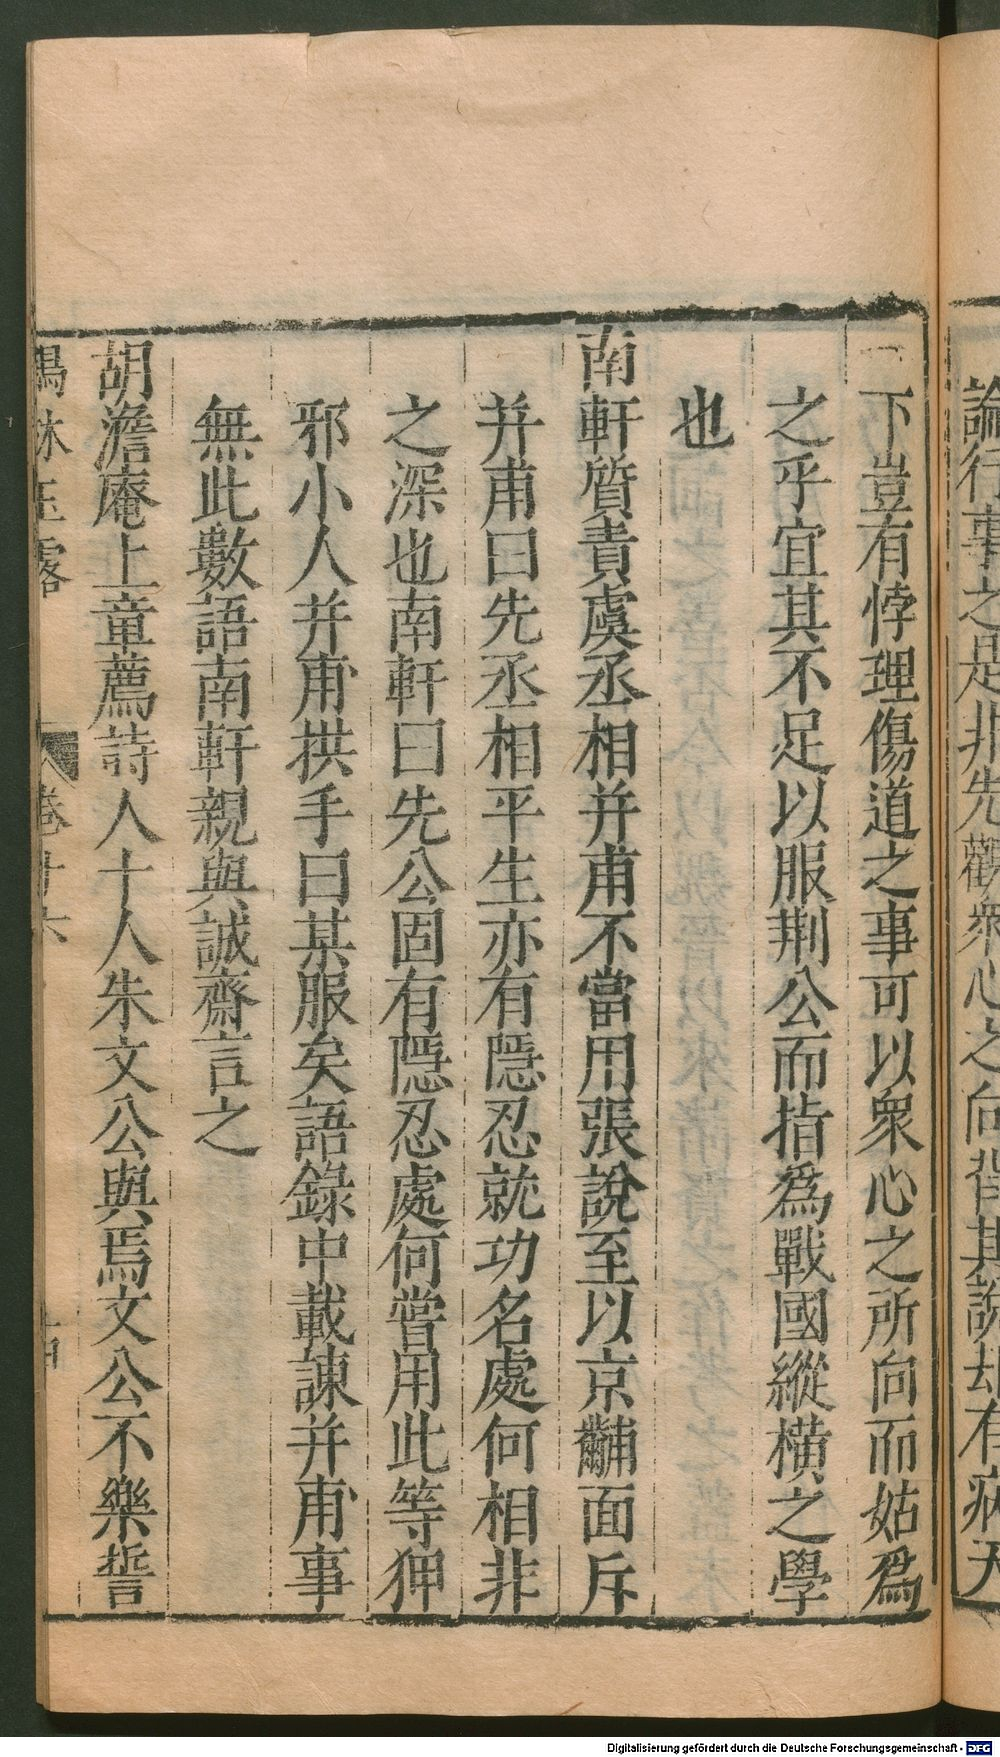 論行事之是非先觀衆心之向背其說却有病天
下豈有悖理傷道之事可以衆心之所向而姑爲
之乎宜其不足以服荆公而指爲戰國縱橫之學
也
南軒質責虞丞相并甫不當用張說至以京黼面斥
并甫曰先丞相平生亦有隱忍就功名處何相非
之深也南軒曰先公固有隱忍處何嘗用此等狎
邪小人并甫拱手曰某服矣語錄中載諫并甫事
無此數語南軒親與誠齋言之
胡澹庵上章薦詩人十人朱文公與焉文公不樂誓
鶴林玉露 卷十六
Digitalisierung gefördert durch die Deutsche Forschungsgemeinschaft - DFG